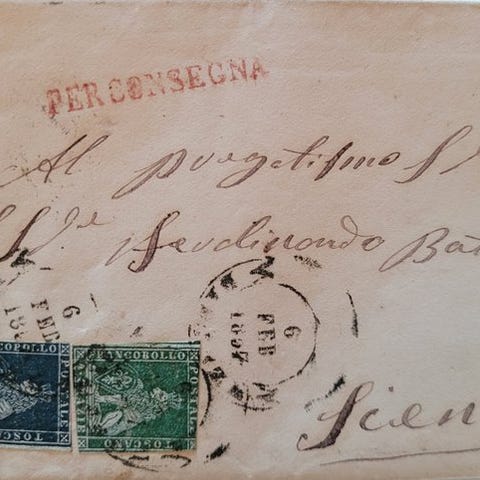 PER CONSEGNA
Al Pregiatissimo S
Sre Ferdinando Ba
6
FEB
1857
6
FEB
18
FRANCOBOLLO
POSTALE
TOSCANO
COPOLLO
POSTALE
TOSC
Sien